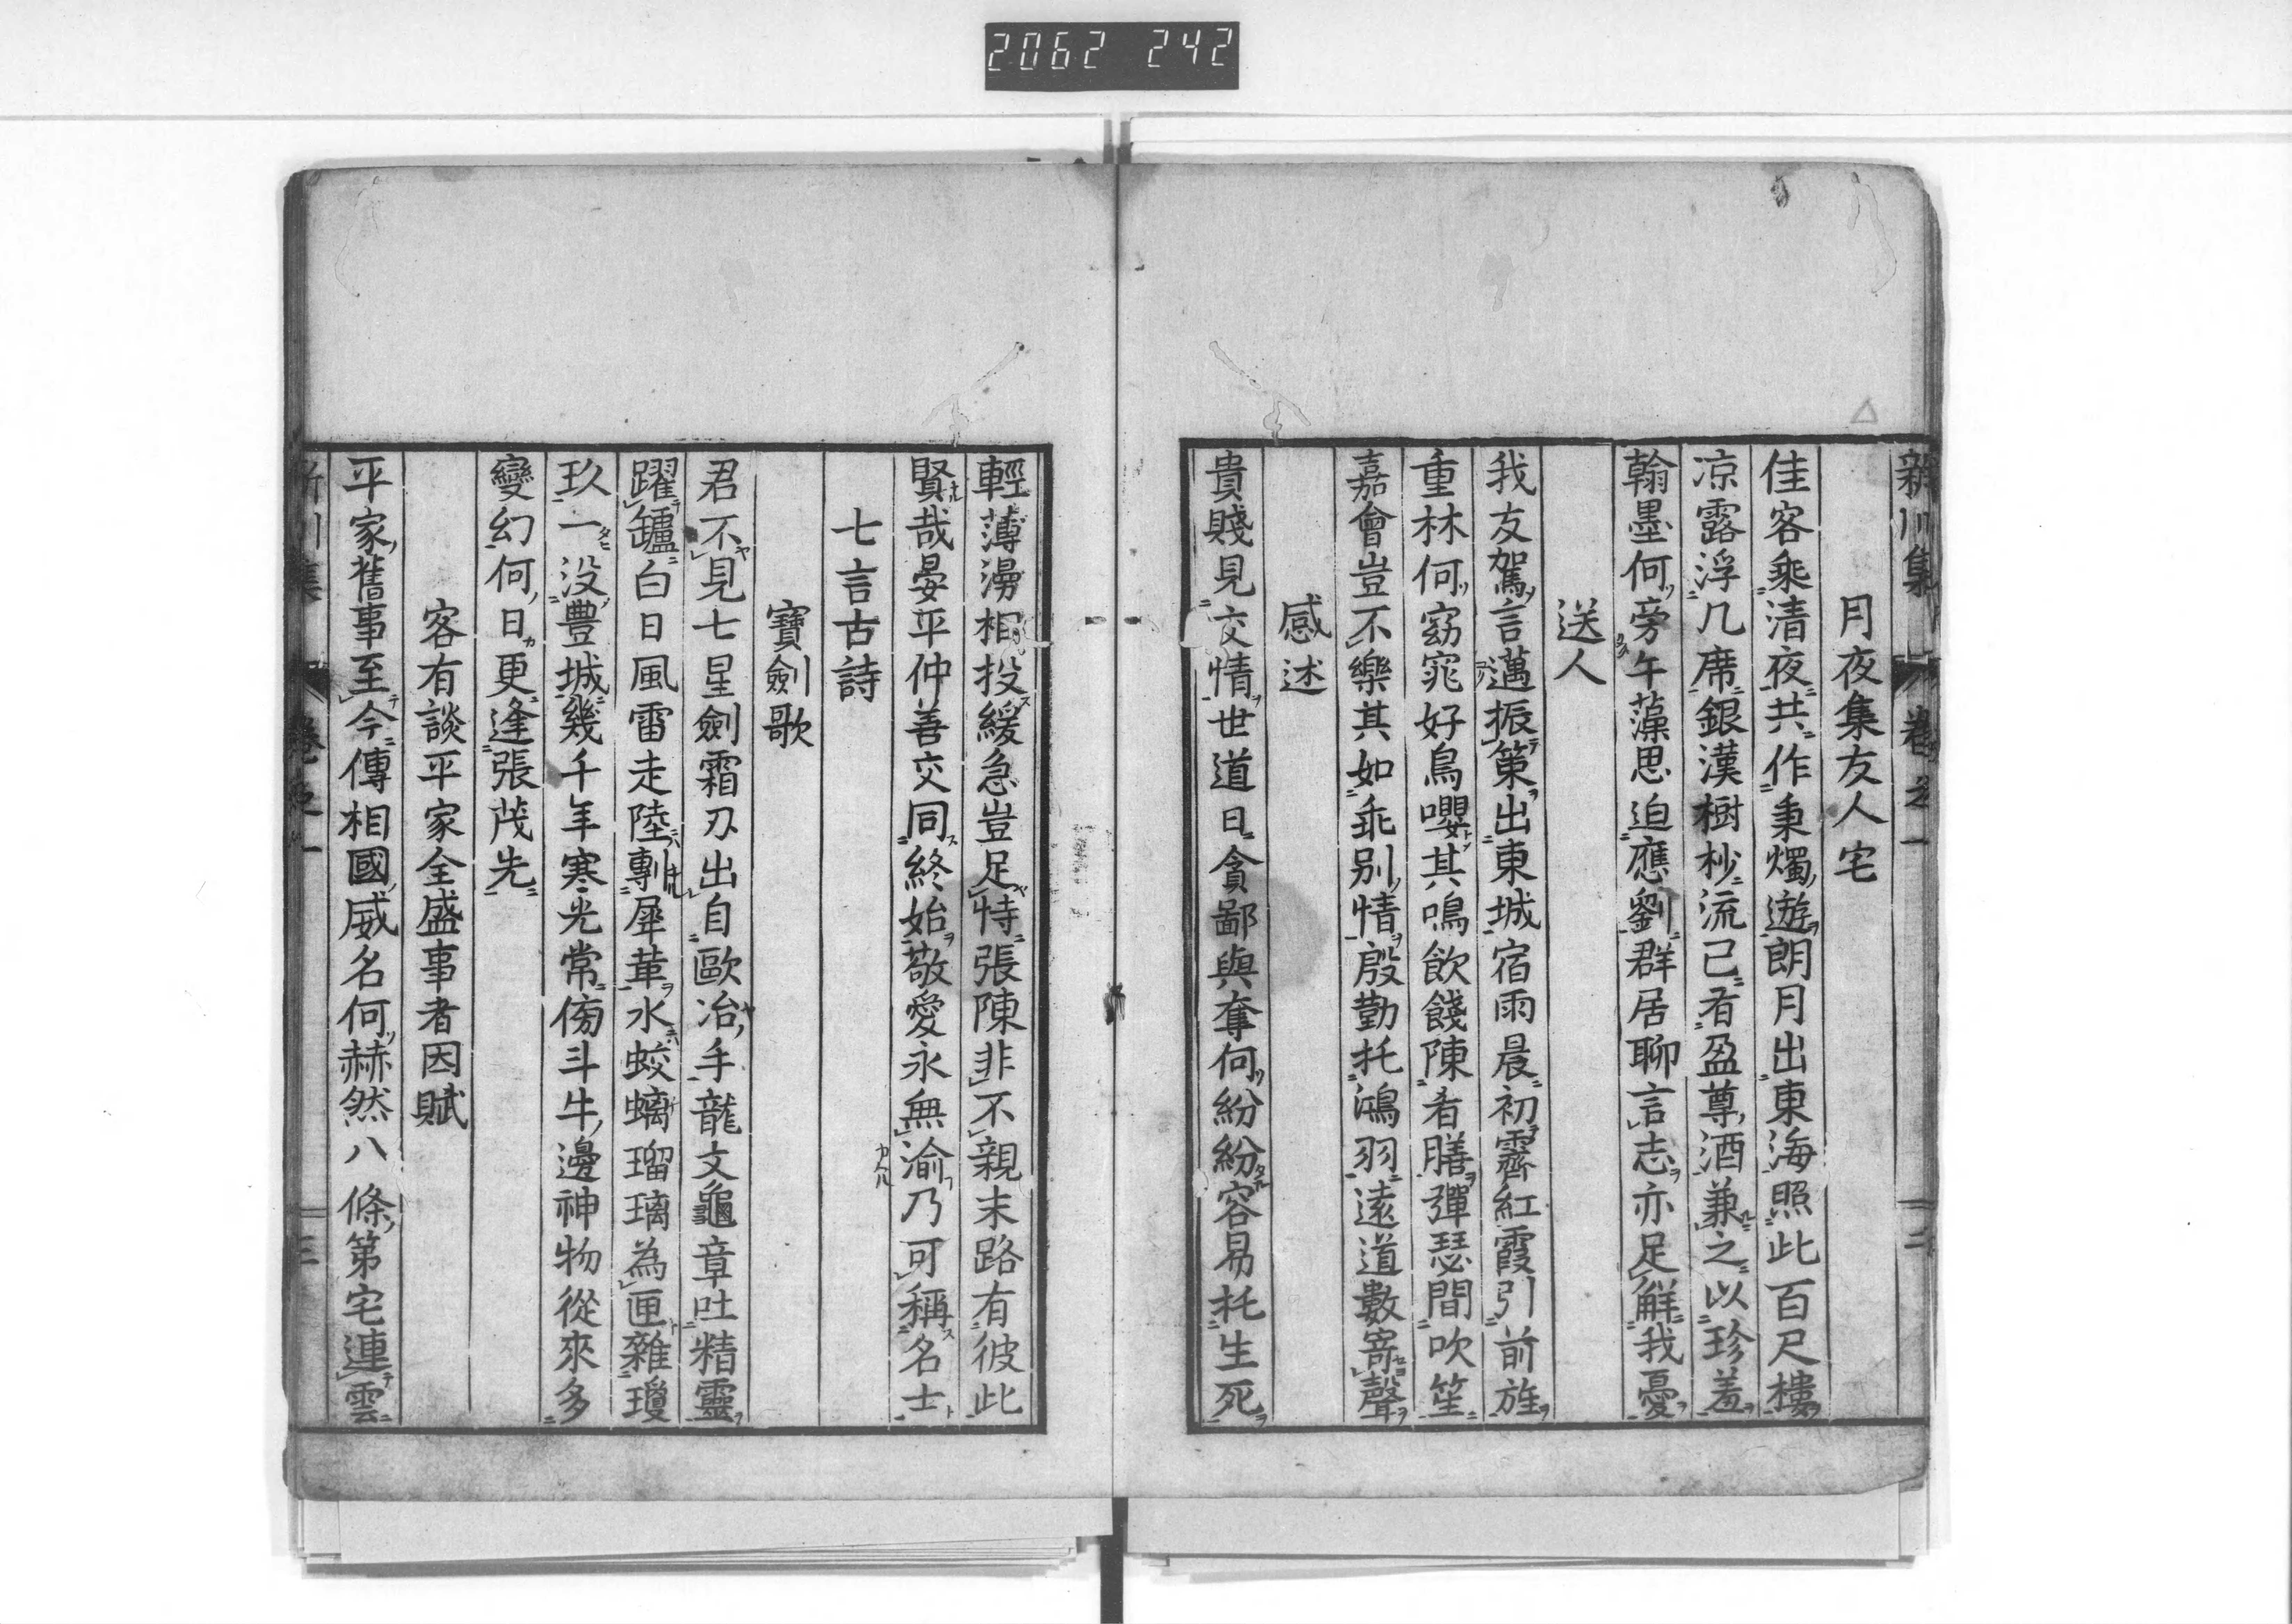 2062 242
新川集 卷之一 二
月夜集友人宅
佳客乘清夜共作秉燭遊朗月出東海照此百尺樓
凉露浮几席銀漢樹杪流已看盈尊酒兼之以珍羞
翰墨何旁午藻思迫應劉群居聊言志亦足觧我憂
送人
我友駕言邁振策出東城宿雨晨初霽紅霞引前旌
重林何窈窕好鳥嚶其鳴飲餞陳肴膳彈瑟間吹笙
嘉會豈不樂其如乖别情殷勤托鴻羽遠道數寄聲
感述
貴賤見交情世道日貪鄙與奪何紛紛容易托生死
輕薄漫相投緩急豈足恃張陳非不親末路有彼此
賢哉晏平仲善交同終始敬愛永無渝乃可稱名士
七言古詩
寶劍歌
君不見七星劍霜刃出自歐冶手龍文龜章吐精靈
躍鑪白日風雷走陸剸犀革水蛟螭瑠璃為匣雜瓊
玖一没豐城幾千年寒光常傍斗牛邊神物從來多
變幻何日更逢張茂先
客有談平家全盛事者因賦
平家舊事至今傳相國威名何赫然八條第宅連雲
新川集 卷之一 三